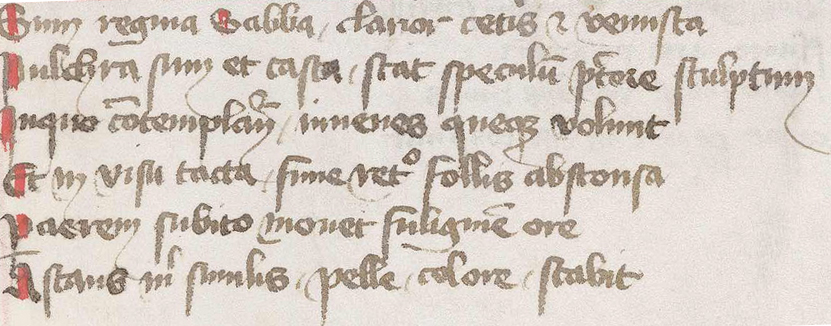 Sum regina Sabba, clarior cetis et venusta
Pulchra sum et casta, stat speculū pctore sculptum
Inquo cōtemplanr, iuuenes queqz volunt
Et in visu tacta, fune ret° follis absconsa
Paerem subito mouet fuliginē ore
Astans m similis, pelle, colore, stabit